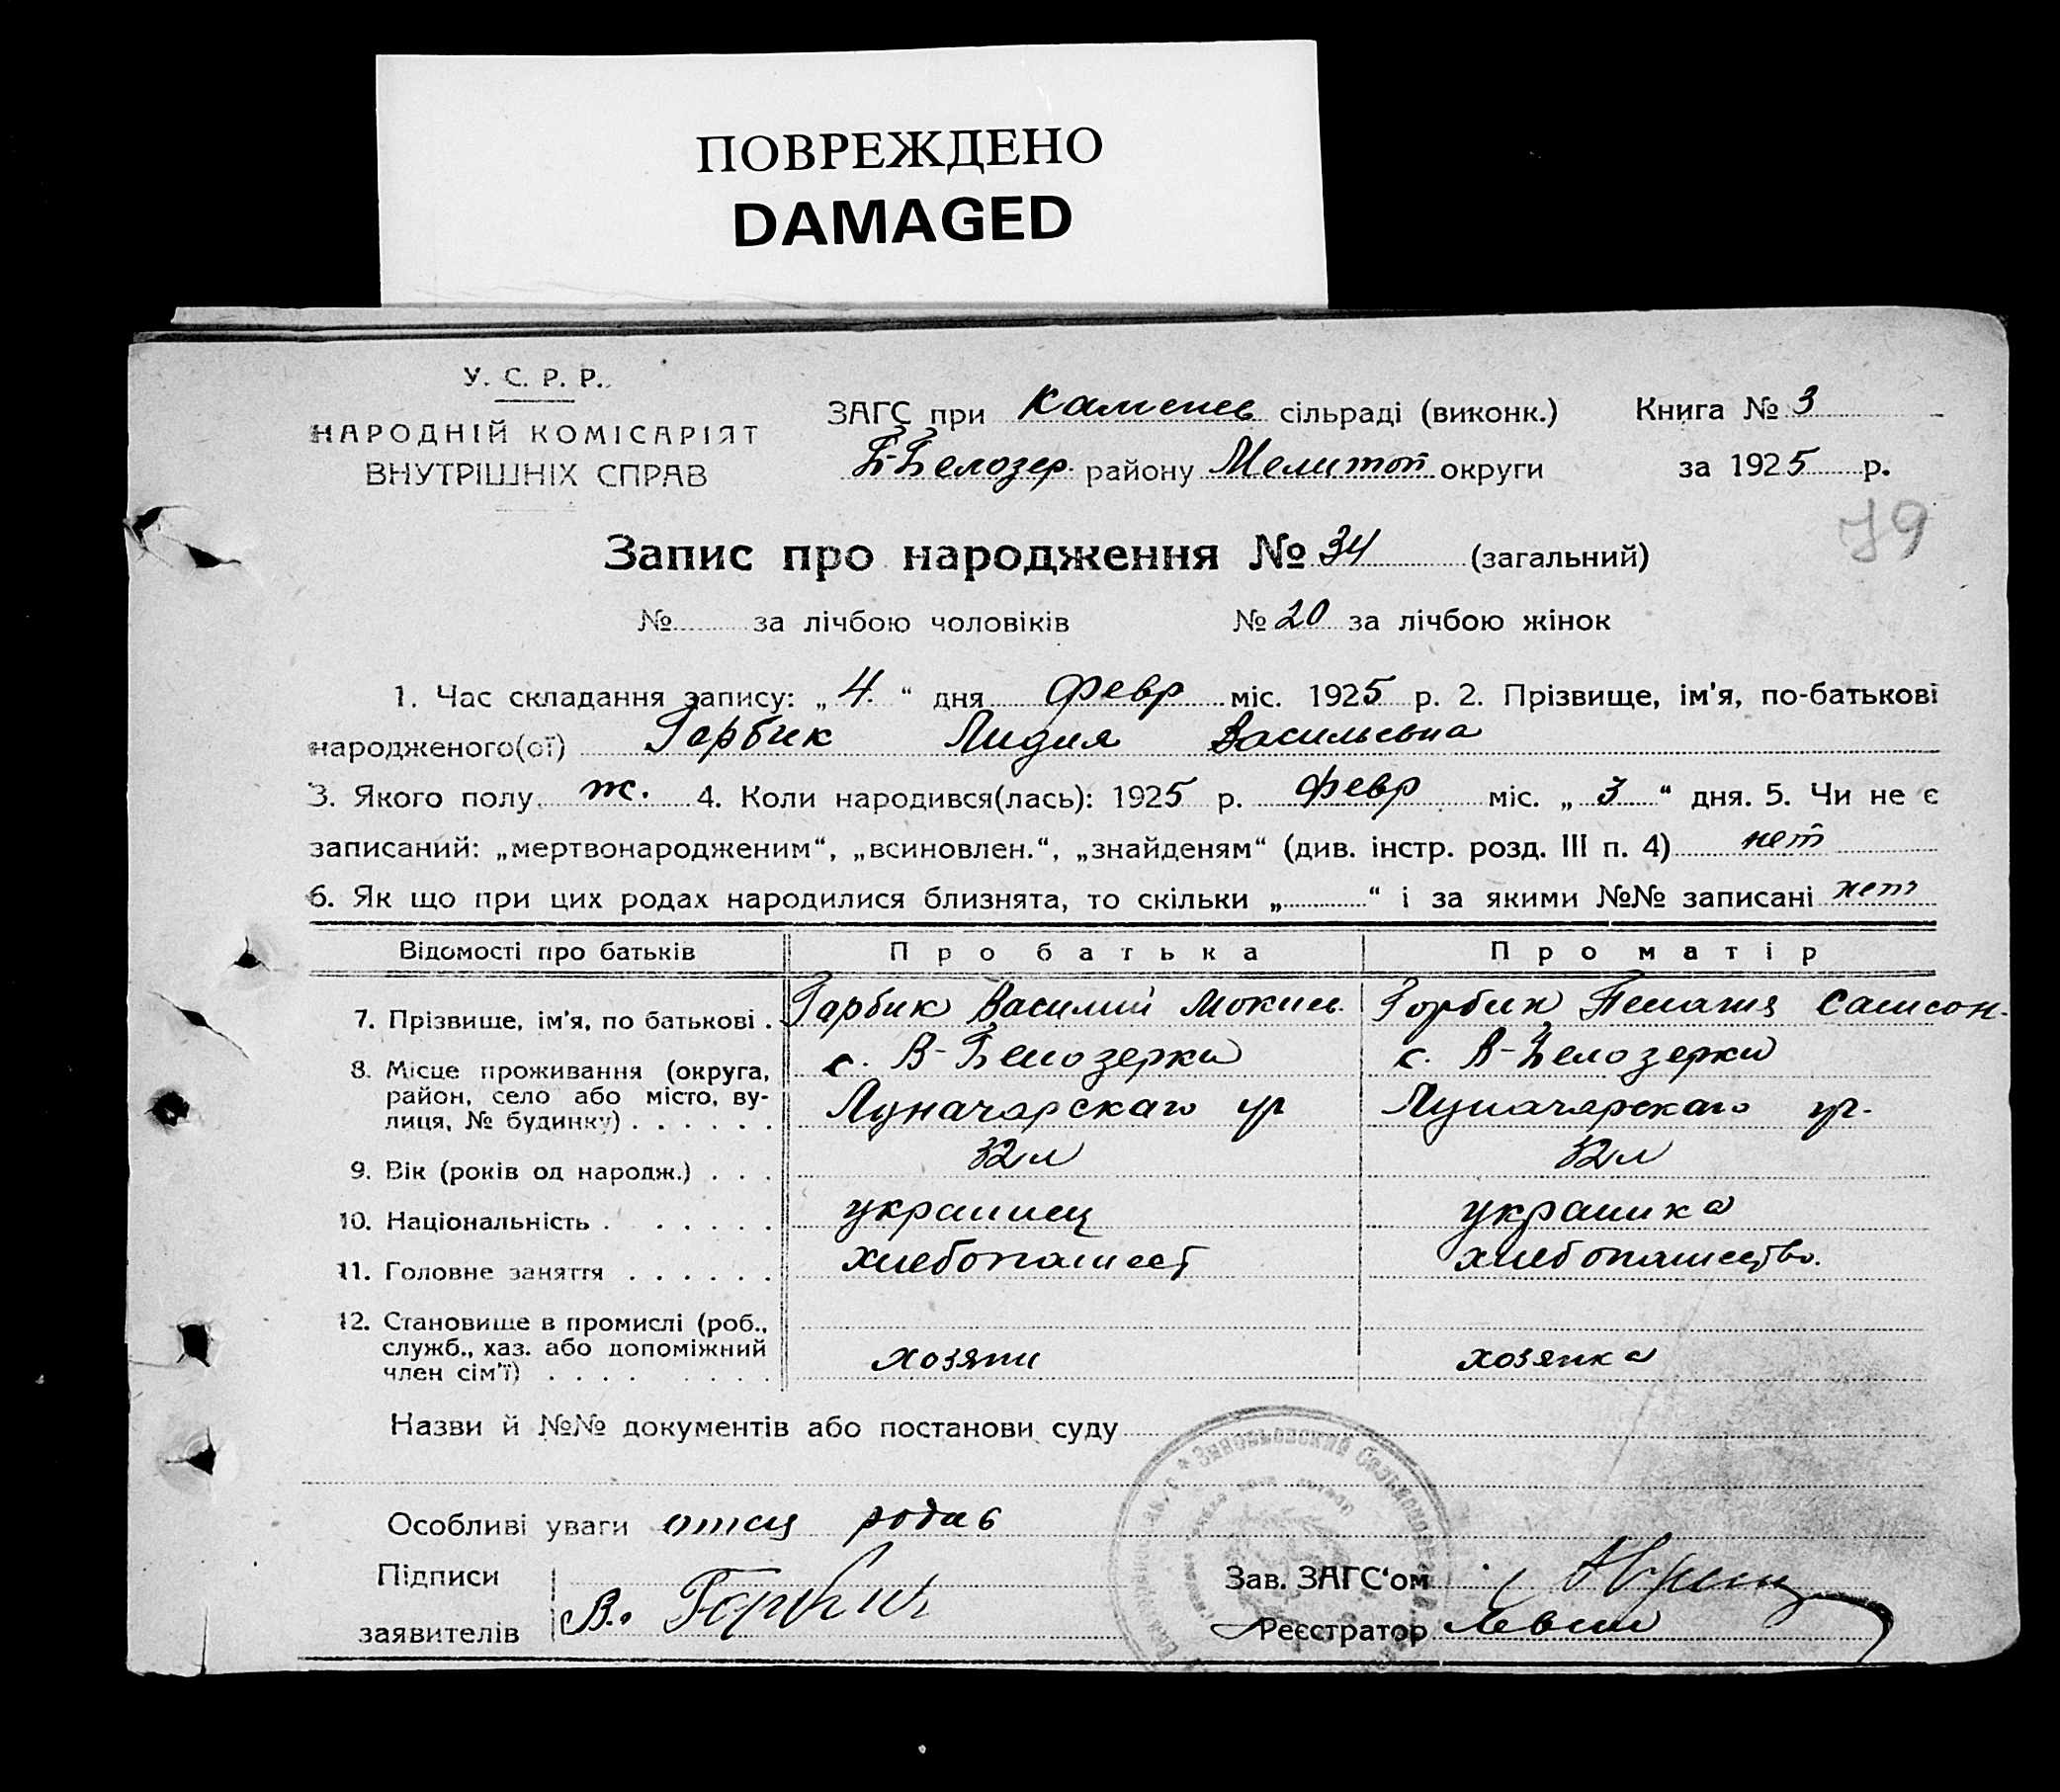 ПОВРЕЖДЕНО
DAMAGED
У. С. Р. Р.
НАРОДНІЙ КОМІСАРІЯТ
ВНУТРІШНІХ СПРАВ
ЗАГС при Каменев сільраді (виконк.) Книга № 3
Б-Белозер. району Мелитоп округи за 1925 р.
79
Запис про народження № 34 (загальний)
№ за лічбою чоловіків № 20 за лічбою жінок
1. Час складання запису: „4.“ дня февр міс. 1925 р. 2. Прізвище, ім'я, по-батькові
народженого(ої) Гарбик Лидия Васильевна
3. Якого полу ж. 4. Коли народився(лась): 1925 р. февр міс. „3“ дня. 5. Чи не є
записаний: „мертвонародженим“, „всиновлен.“, „знайденям“ (див. інстр. розд. III п. 4) нет
6. Як що при цих родах народилися близнята, то скільки „ “ і за якими №№ записані нет
Відомості про батьків Про батька Про матір
7. Прізвище, ім'я, по батькові . Гарбик Василий Мокиев. Горбик Пелагия Самсон.
8. Місце проживання (округа, с. В-Белозерки с. В-Белозерки
район, село або місто, ву-
лиця, № будинку) . . . . . . Луначарскаго ул Луначарскаго ул.
9. Вік (років од народж.) . . . 32 л 32 л
10. Національність . . . . . . украинец украинка
11. Головне заняття . . . . . . хлебопашест хлебопашество.
12. Становище в промислі (роб.,
служб., хаз. або допоміжний хозяин хозяйка
член сім'ї) . . . . . . . .
Назви й №№ документів або постанови суду
Особливі уваги отец
Підписи Зав. ЗАГС‘ом
заявителів В. Горбик Реєстратор Левин